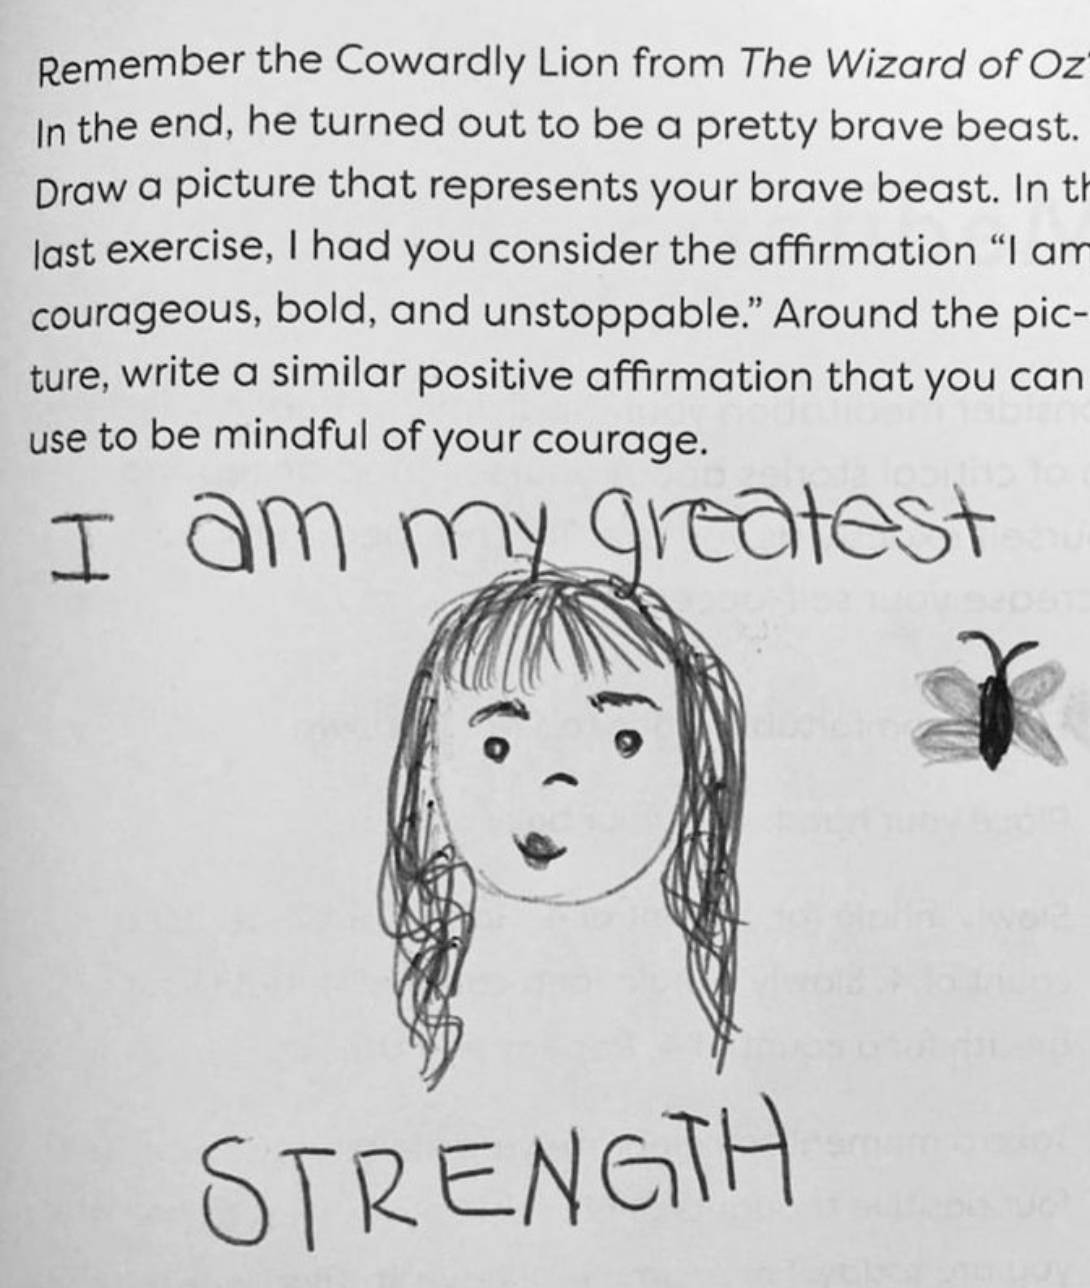 Remember the Cowardly Lion from The Wizard of Oz?
In the end, he turned out to be a pretty brave beast.
Draw a picture that represents your brave beast. In th
last exercise, I had you consider the affirmation “I am
courageous, bold, and unstoppable.” Around the pic-
ture, write a similar positive affirmation that you can
use to be mindful of your courage.
I am my greatest
STRENGTH